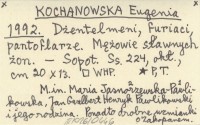 KOCHANOWSKA Eugenia
1992. Dżentelmeni, furiaci,
pantoflarze. Mężowie sławnych
żon. – Sopot. Ss. 224, okł.,
cm 20 x 13. □ WHP. * P, T.
M. in. Maria Jasnorzewska-Pawli-
kowska, Jan Gwalbert Henryk Pawlikowski
i jego rodzina. Ponadto drobne wzmianki
o Zakopanem.